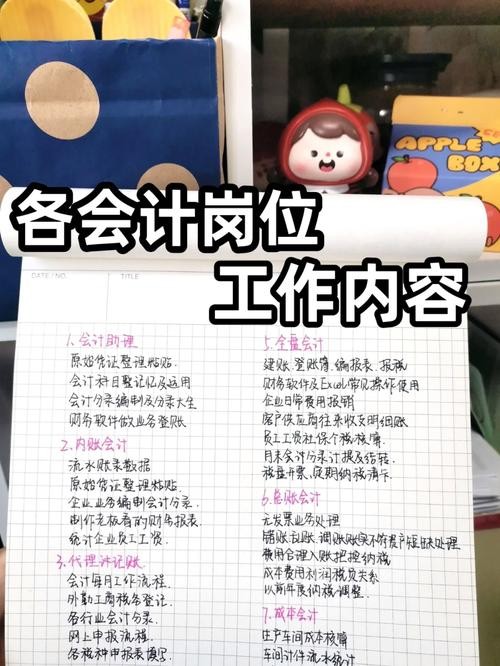 APPLE
BOX
各会计岗位
工作内容
DATE / NO.
TITLE
1.会计助理
原始凭证整理粘贴.
会计科目整记忆及运用
会计分录编制及分录大全
财务软件做业务登账
2.内账会计
流水账录数据
原始凭证整理粘贴.
企业业务编制会计分录.
制作老板看的财务报表
统计企业员工工资.
3.代理记账
会计每月工作流程.
外勤工商税务登记.
各行业会计分录.
网上申报流程.
各税种申报表填写.
5.全盘会计
建账.登账簿.编报表.报税
财务软件及Excel常见操作使用
企业日常费用报销
客户供应商往来收支明细账
员工工资社保个税核算.
月末会计分录计提及结转.
税盘开票、定期纳税清卡.
6.总账会计
无发票业务处理
错账乱账.调账账实不符资产短缺处理
费用合理入账把控纳税
成本费用利润税负关系
以前年度纳税调整.
7.成本会计
生产车间成本核算
车间计件流水统计